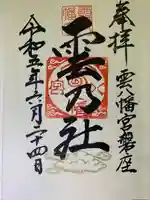 奉拝
雲八幡宮磐座
雲乃社
令和五年六月二十四日